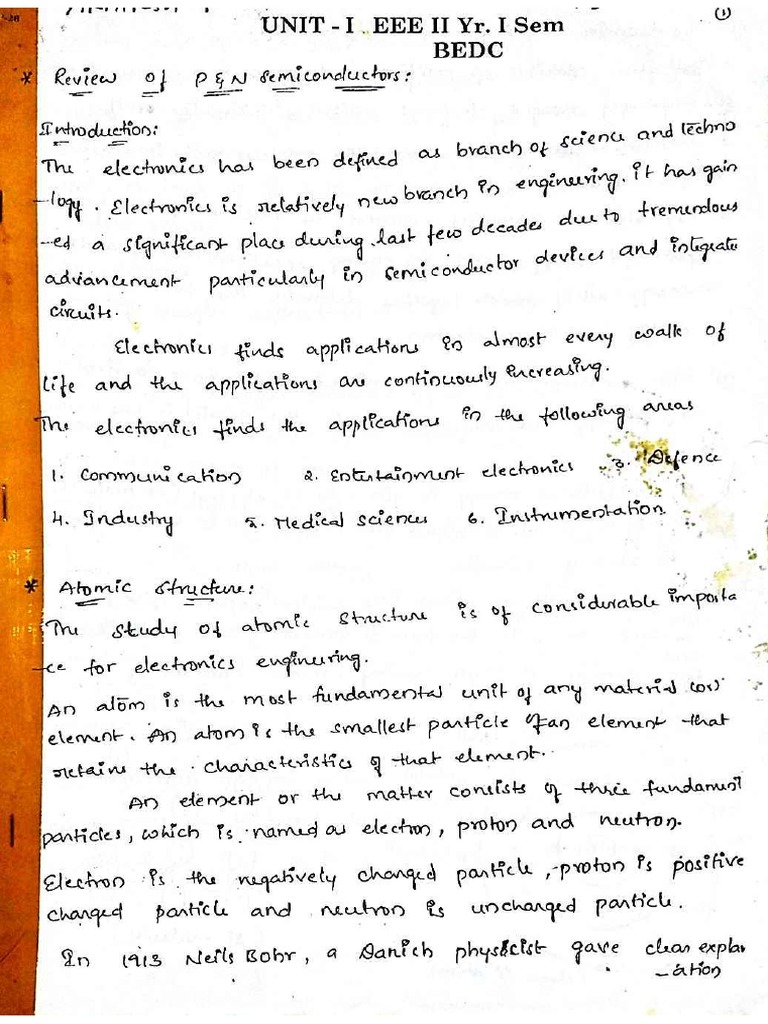 (1)
UNIT - I EEE II Yr. I Sem
BEDC
* Review of P & N semiconductors:
Introduction:
The electronics has been defined as branch of science and techno
-logy. Electronics is relatively new branch in engineering. it has gain
-ed a significant place during last few decades due to tremendous
advancement particularly in semiconductor devices and integrate
circuits.
Electronics finds applications in almost every walk of
life and the applications are continuously increasing.
The electronics finds the applications in the following areas
1. Communication 2. Entertainment electronics 3. Defence
4. Industry 5. Medical sciences 6. Instrumentation
* Atomic structure:
The study of atomic structure is of considerable importa
-ce for electronics engineering.
An atom is the most fundamental unit of any material (or)
element. An atom is the smallest particle of an element that
retains the characteristics of that element.
An element or the matter consists of three fundament
particles, which is named as electron, proton and neutron.
Electron is the negatively changed particle, proton is positive
changed particle and neutron is unchanged particle.
In 1913 Neils Bohr, a Danich physicist gave clear explan
-ation